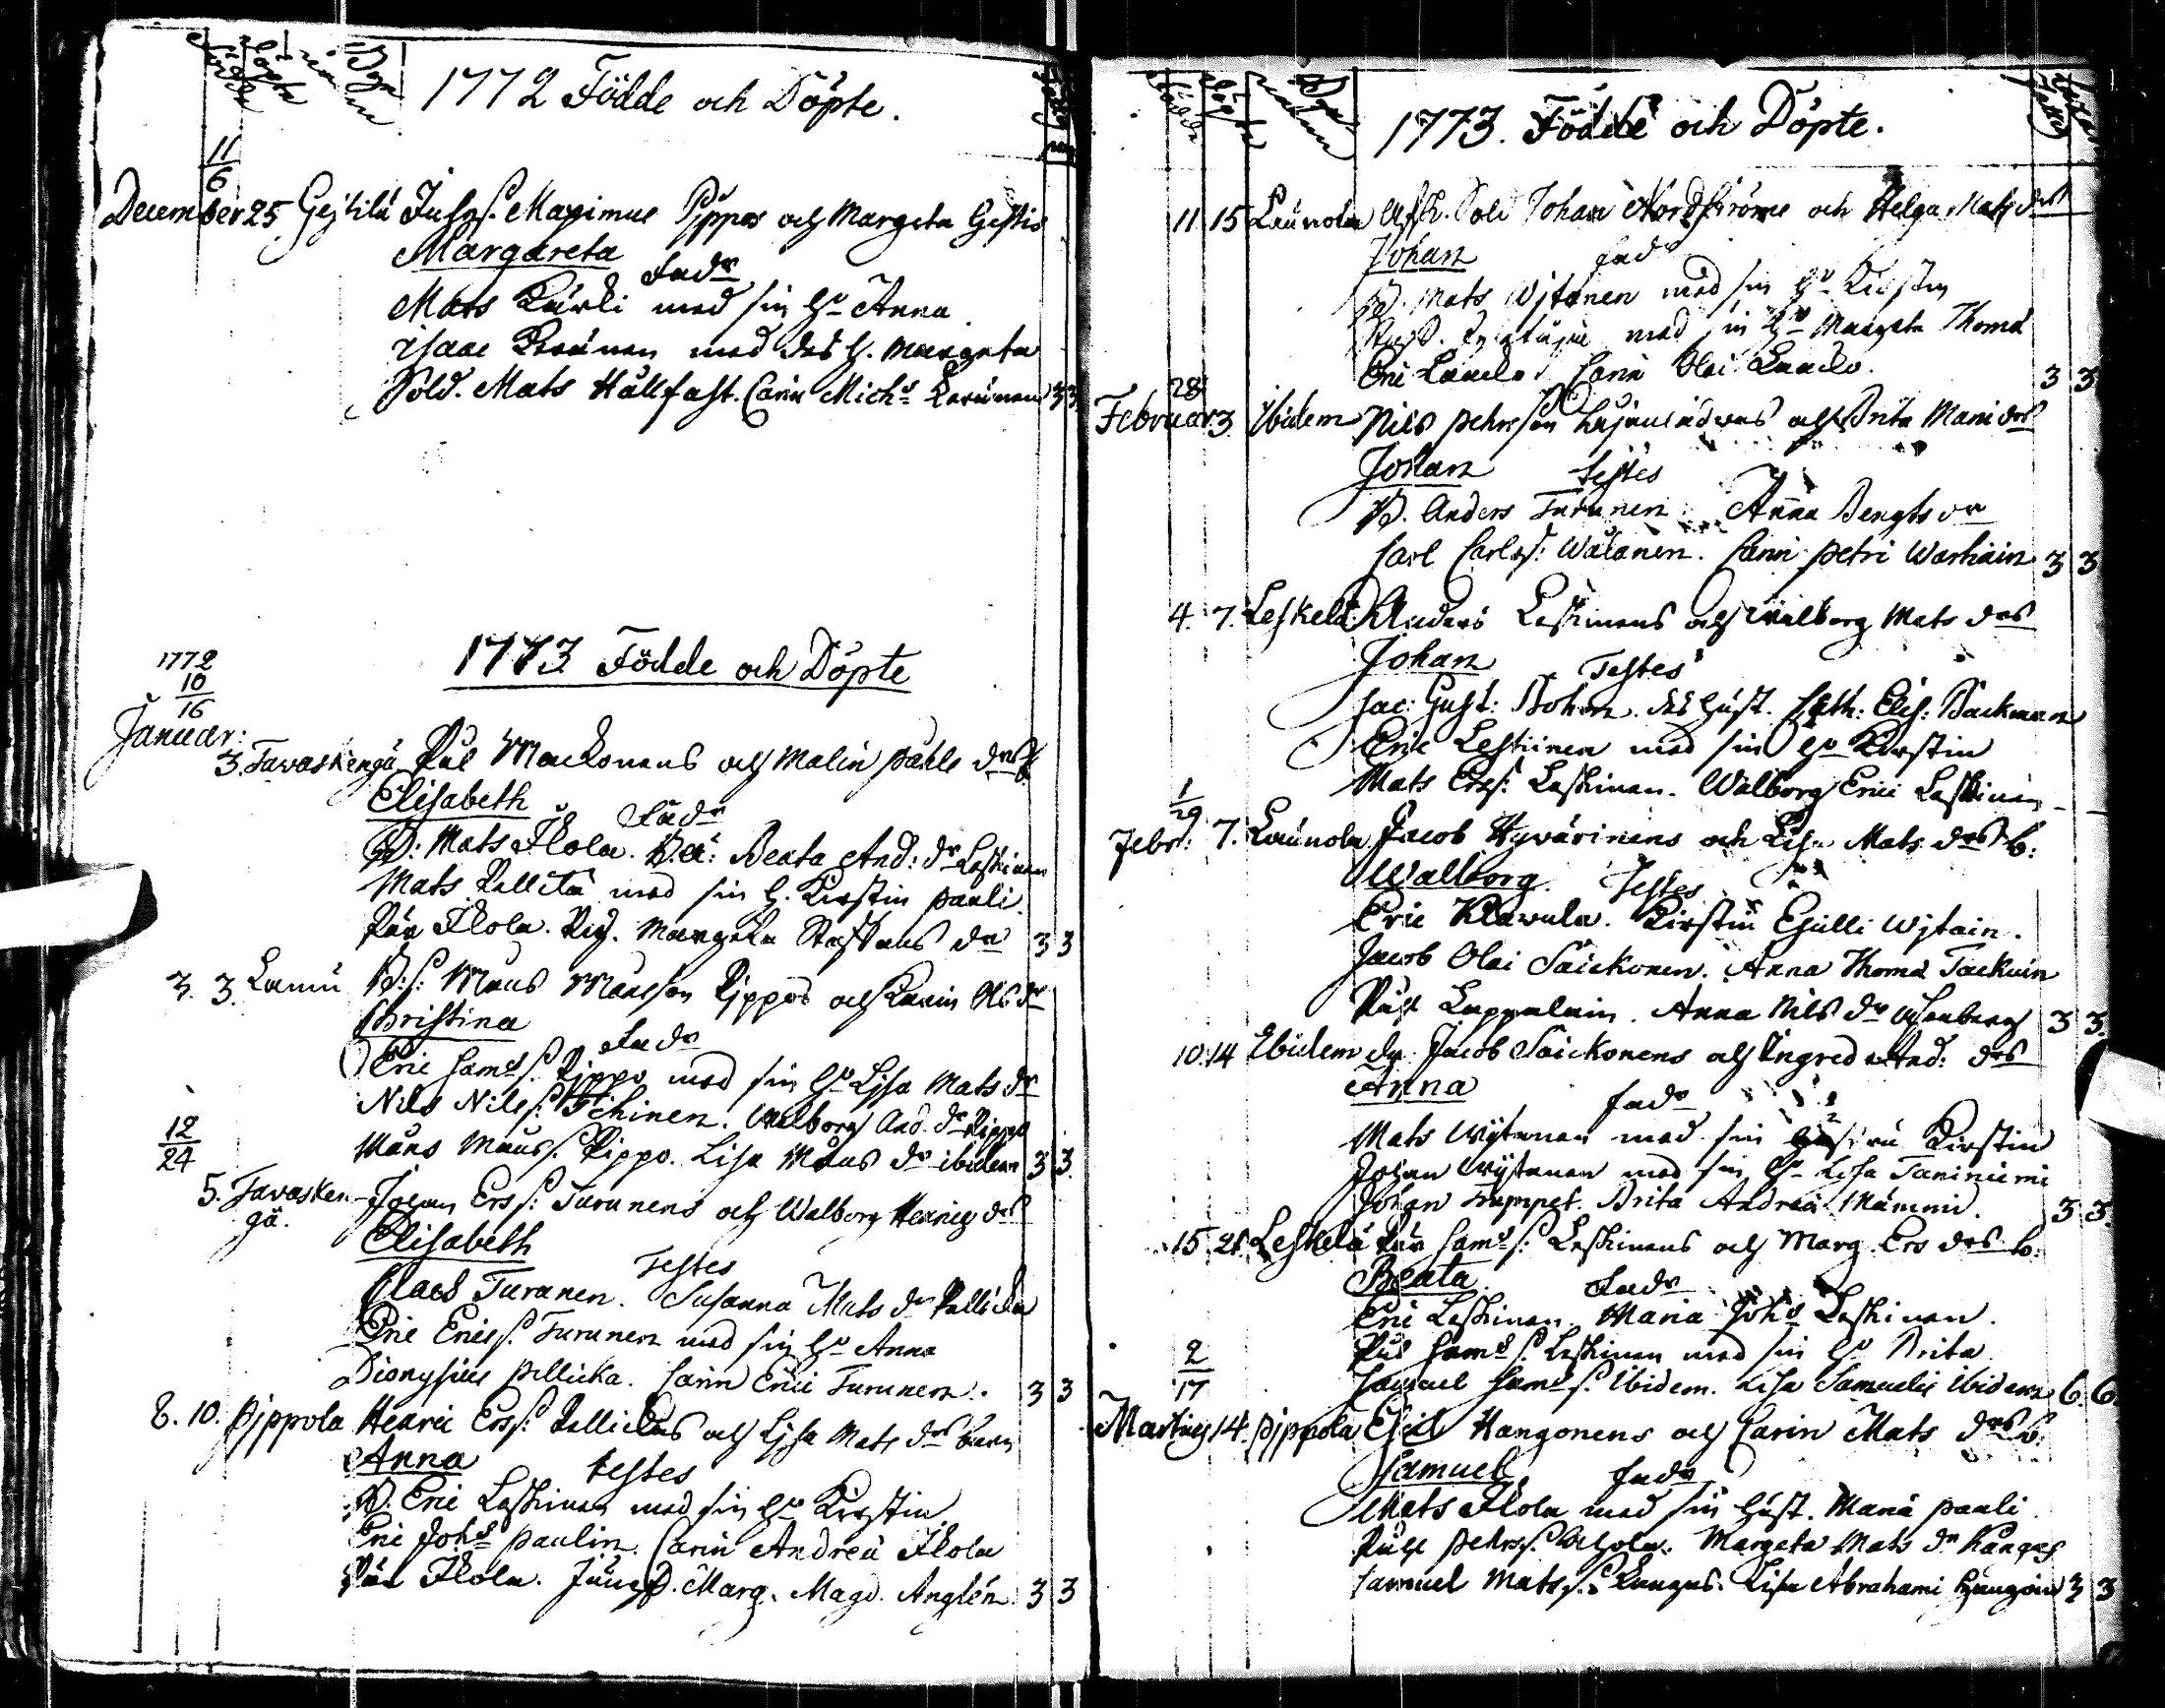 Födde
Döpte
Byar
namn
1772 Födde och Döpte.
11
6
December 25 Gejtilä Inhys. Maximus Pippos och Margeta Gestis
Margareta
Fadr
Mats Kärki med sin hu Anna
Isaac Keränen med des h. Margeta
Sold. Mats Hällfast. Carin Michs Keränen 3 3
1773 Födde och Döpte
1772
10
16
Januar:
3. Tavaskengä Pål Mackonens och Malin Påhls drs b.
Elisabeth
Fadr
B: Mats Ilola. B.ä: Beata And: dr Leskinen
Mats Pellikä med sin h. Kirstin Pauli
Pär Ilola. Pig. Margeta Staffans dr 3 3
3. 3. Lamu B:s: Måns Månsson Pippos och Karin Ols dr
Christina
Fadr
Eric Sams s. Pippo med sin hu Lisa Mats dr
Nils Nils s: Tichinen. Walborg And. dr Pippo
Måns Månss. Pippo. Lisa Måns dr ibidem 3 3.
12
24
5. Tavasken-
gä.
Johan Ers s: Turunens och Walborg Henrics drs
Elisabeth
Testes
Claes Turunen. Susanna Mats dr Pellika
Eric Erics s. Turunen med sin hu Anna
Dionysius Pellicka. Carin Erici Turunen. 3 3
8. 10. Pippola Henric Ers s: Pellickas och Lisa Mats drs barn
Anna
testes
B. Eric Leskinen med sin hu Kirstin
Eric Johs Paulin. Carin Andreä Ilola
Pär Ilola. Jungf. Marg. Magd. Anglén. 3 3
Födde
Döpte
Byar
namn
1773. Födde och Döpte.
11 15 Launola Afsk. Sold Johan Nordströms och Helga Mats drs
Johan
Fadr
B. Mats Wjtanen med sin hu Kirstin
med sin hu Margeta Thomä
Eric Laucko Carin Olai Laucko. 3 3
28
Februar 3 Ibidem Nils Pehrsson och Brita Mani drs
Johan
testes
B. Anders Turunen. Anna Bengts dr
Carl Carls s: Wälanen. Carin Petri Warhain 3 3
4. 7. Leskelä Anders Leskinens och Walborg Mats drs
Johan
Testes
Jac: Gust: Bohm. des hust. Cath: Elis: Backman
Eric Leskinen med sin hu Kirstin
Mats Ers s: Leskinen. Walborg Erici Leskinen
1
29
Febr: 7. Launola Jacob Hyvärinens och Lisa Mats drs b:
Walborg.
Testes
Eric Klavula. Kirstin Eskilli Wjtain.
Jacob Olai Säickonen. Anna Thomä Tackuin
Påhl Lappalain. Anna Nils dr 3 3.
10. 14 Ibidem Jacob Säickonens och Ingred And: drs
Anna
Fadr
Mats Wjtanen med sin hustru Kirstin
Johan Wjtanen med sin hu Lisa Taniniemi
Johan Trumpet. Brita Andreä Mämmi. 3 3.
15. 21. Leskelä Pär Sams s: Leskinens och Marg. Ers drs b:
Beata.
Fadr
Eric Leskinen. Maria Johs Leskinen.
Pål Sams s. Leskinen med sin hu Brita
Samuel Sams s. Ibidem. Lisa Samuelis Ibidem 6. 6.
2
17
Martius 14. Pippola Eskil Hangonens och Carin Mats drs b:
Samuel
Fadr
Mats Ilola med sin hust. Maria Pauli
Påhl Pehrs s. Ahola. Margeta Mats dr Kangas
Samuel Mats s: Kangas. Lisa Abrahami Hangoin 3 3